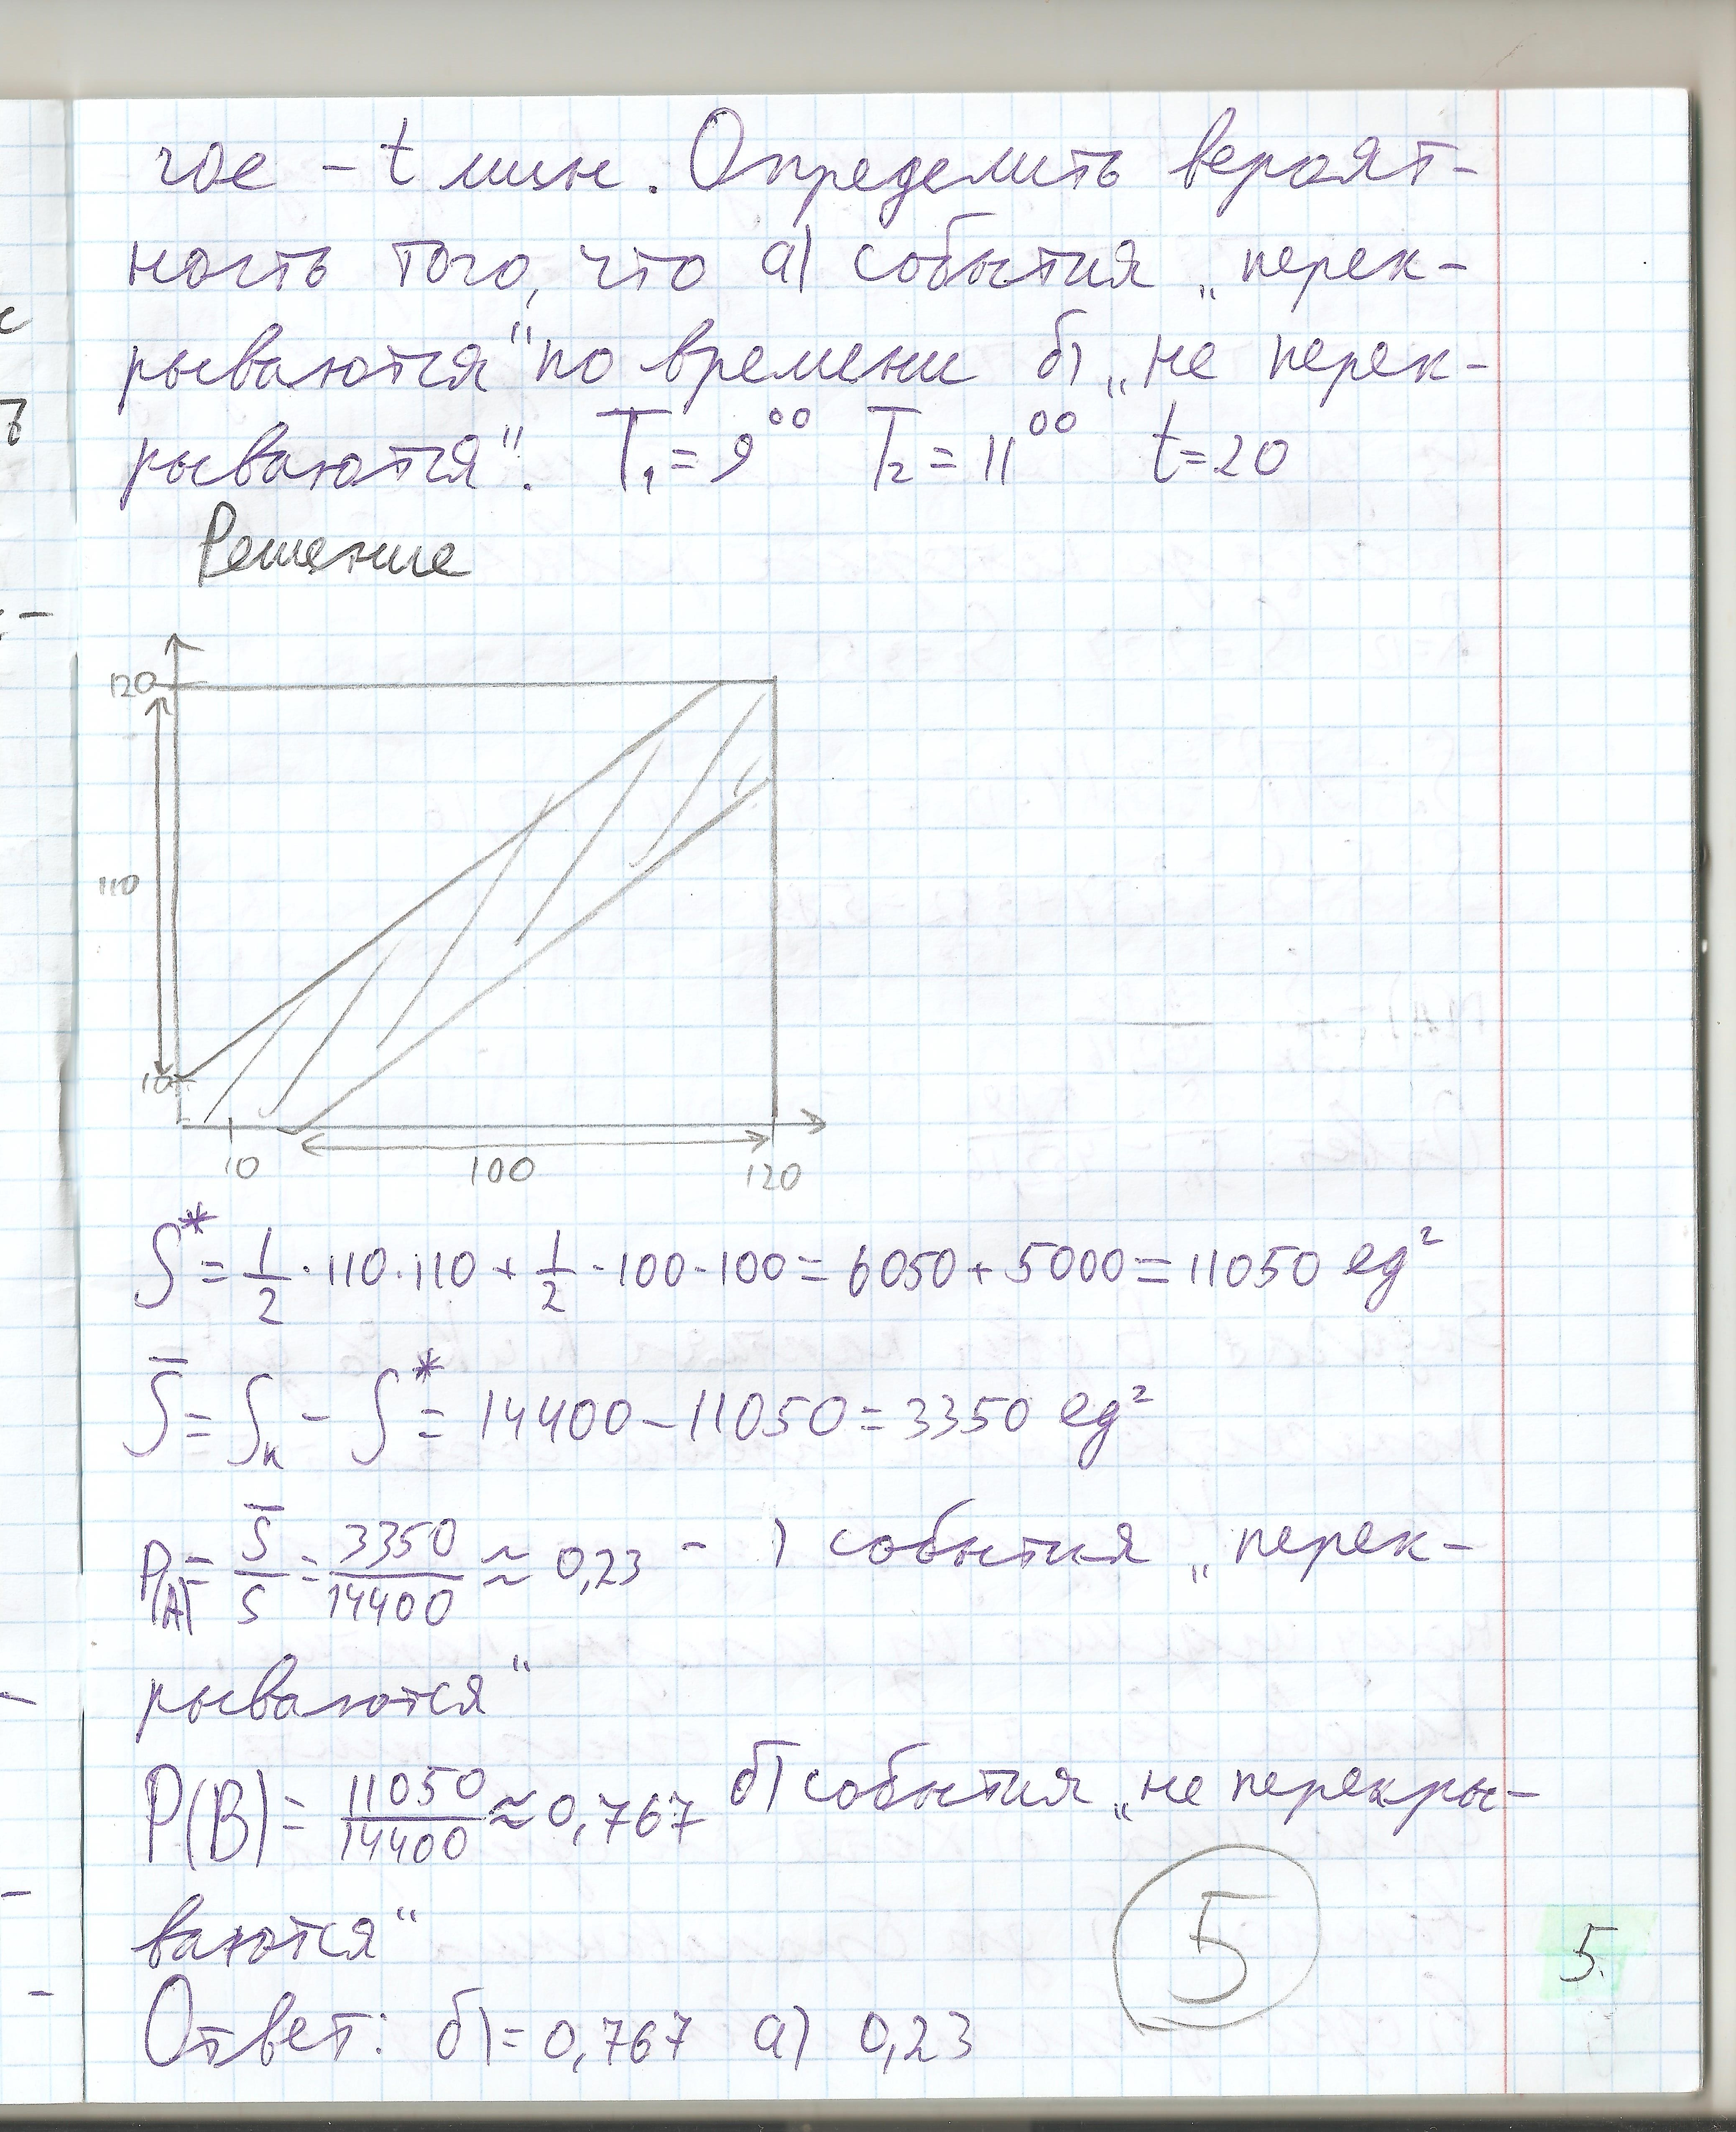 гое – t мин. Определить вероят-
ность того, что а) события „перек-
рываются“ по времени б) „не перек-
рываются“. T₁ = 9⁰⁰ T₂ = 11⁰⁰ t = 20
Решение
120
110
10
10 100 120
S* = 1/2 · 110 · 110 + 1/2 · 100 · 100 = 6050 + 5000 = 11050 ед²
S̄ = Sк – S* = 14400 – 11050 = 3350 ед²
P(A) = S̄/S = 3350/14400 ≈ 0,23 – ) события „перек-
рываются“
P(B) = 11050/14400 ≈ 0,767 б) события „не перекры-
ваются“
Ответ: б) = 0,767 а) 0,23
5
5.